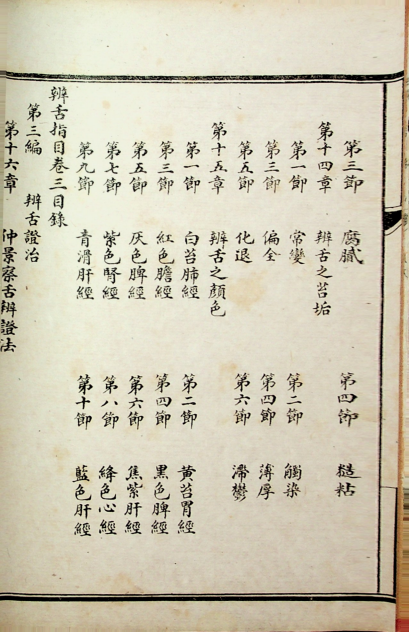 第三節 腐膩 第四節 糙粘
第十四章 辨舌之苔垢
第一節 常變 第二節 觸染
第三節 偏全 第四節 薄厚
第五節 化退 第六節 滯鬱
第十五章 辨舌之顏色
第一節 白苔肺經 第二節 黃苔胃經
第三節 紅色膽經 第四節 黑色脾經
第五節 灰色脾經 第六節 焦紫肝經
第七節 紫色腎經 第八節 絳色心經
第九節 青滑肝經 第十節 藍色肝經
辨舌指目卷三目錄
第三編 辨舌證治
第十六章 仲景察舌辨證法